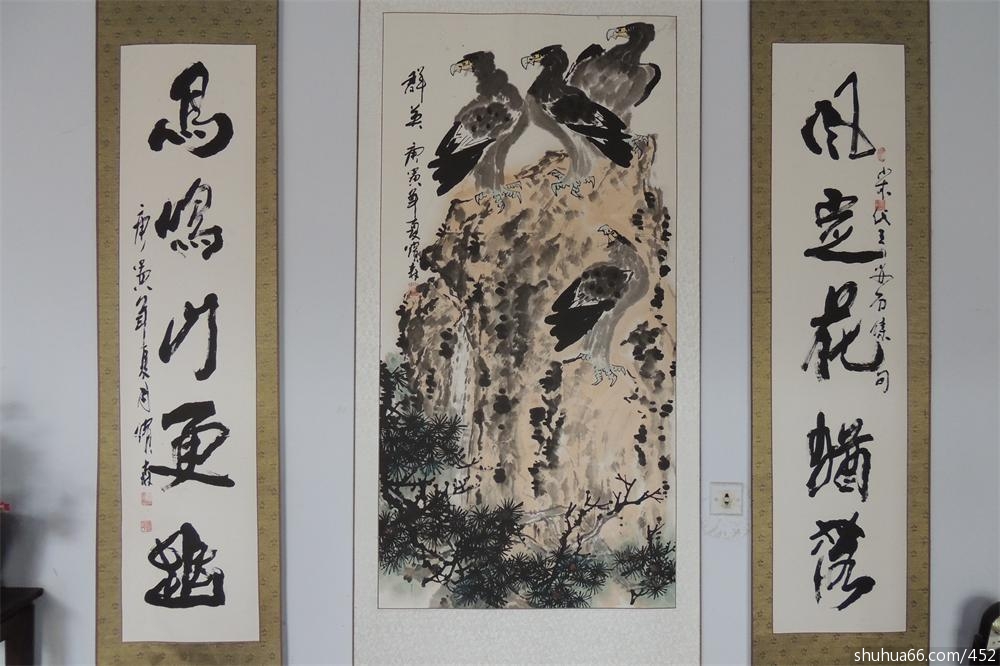 風定花猶落
宋代王安石集句
群英 庚寅年夏
鳥鳴山更幽
庚寅年夏月
shuhua66.com/452